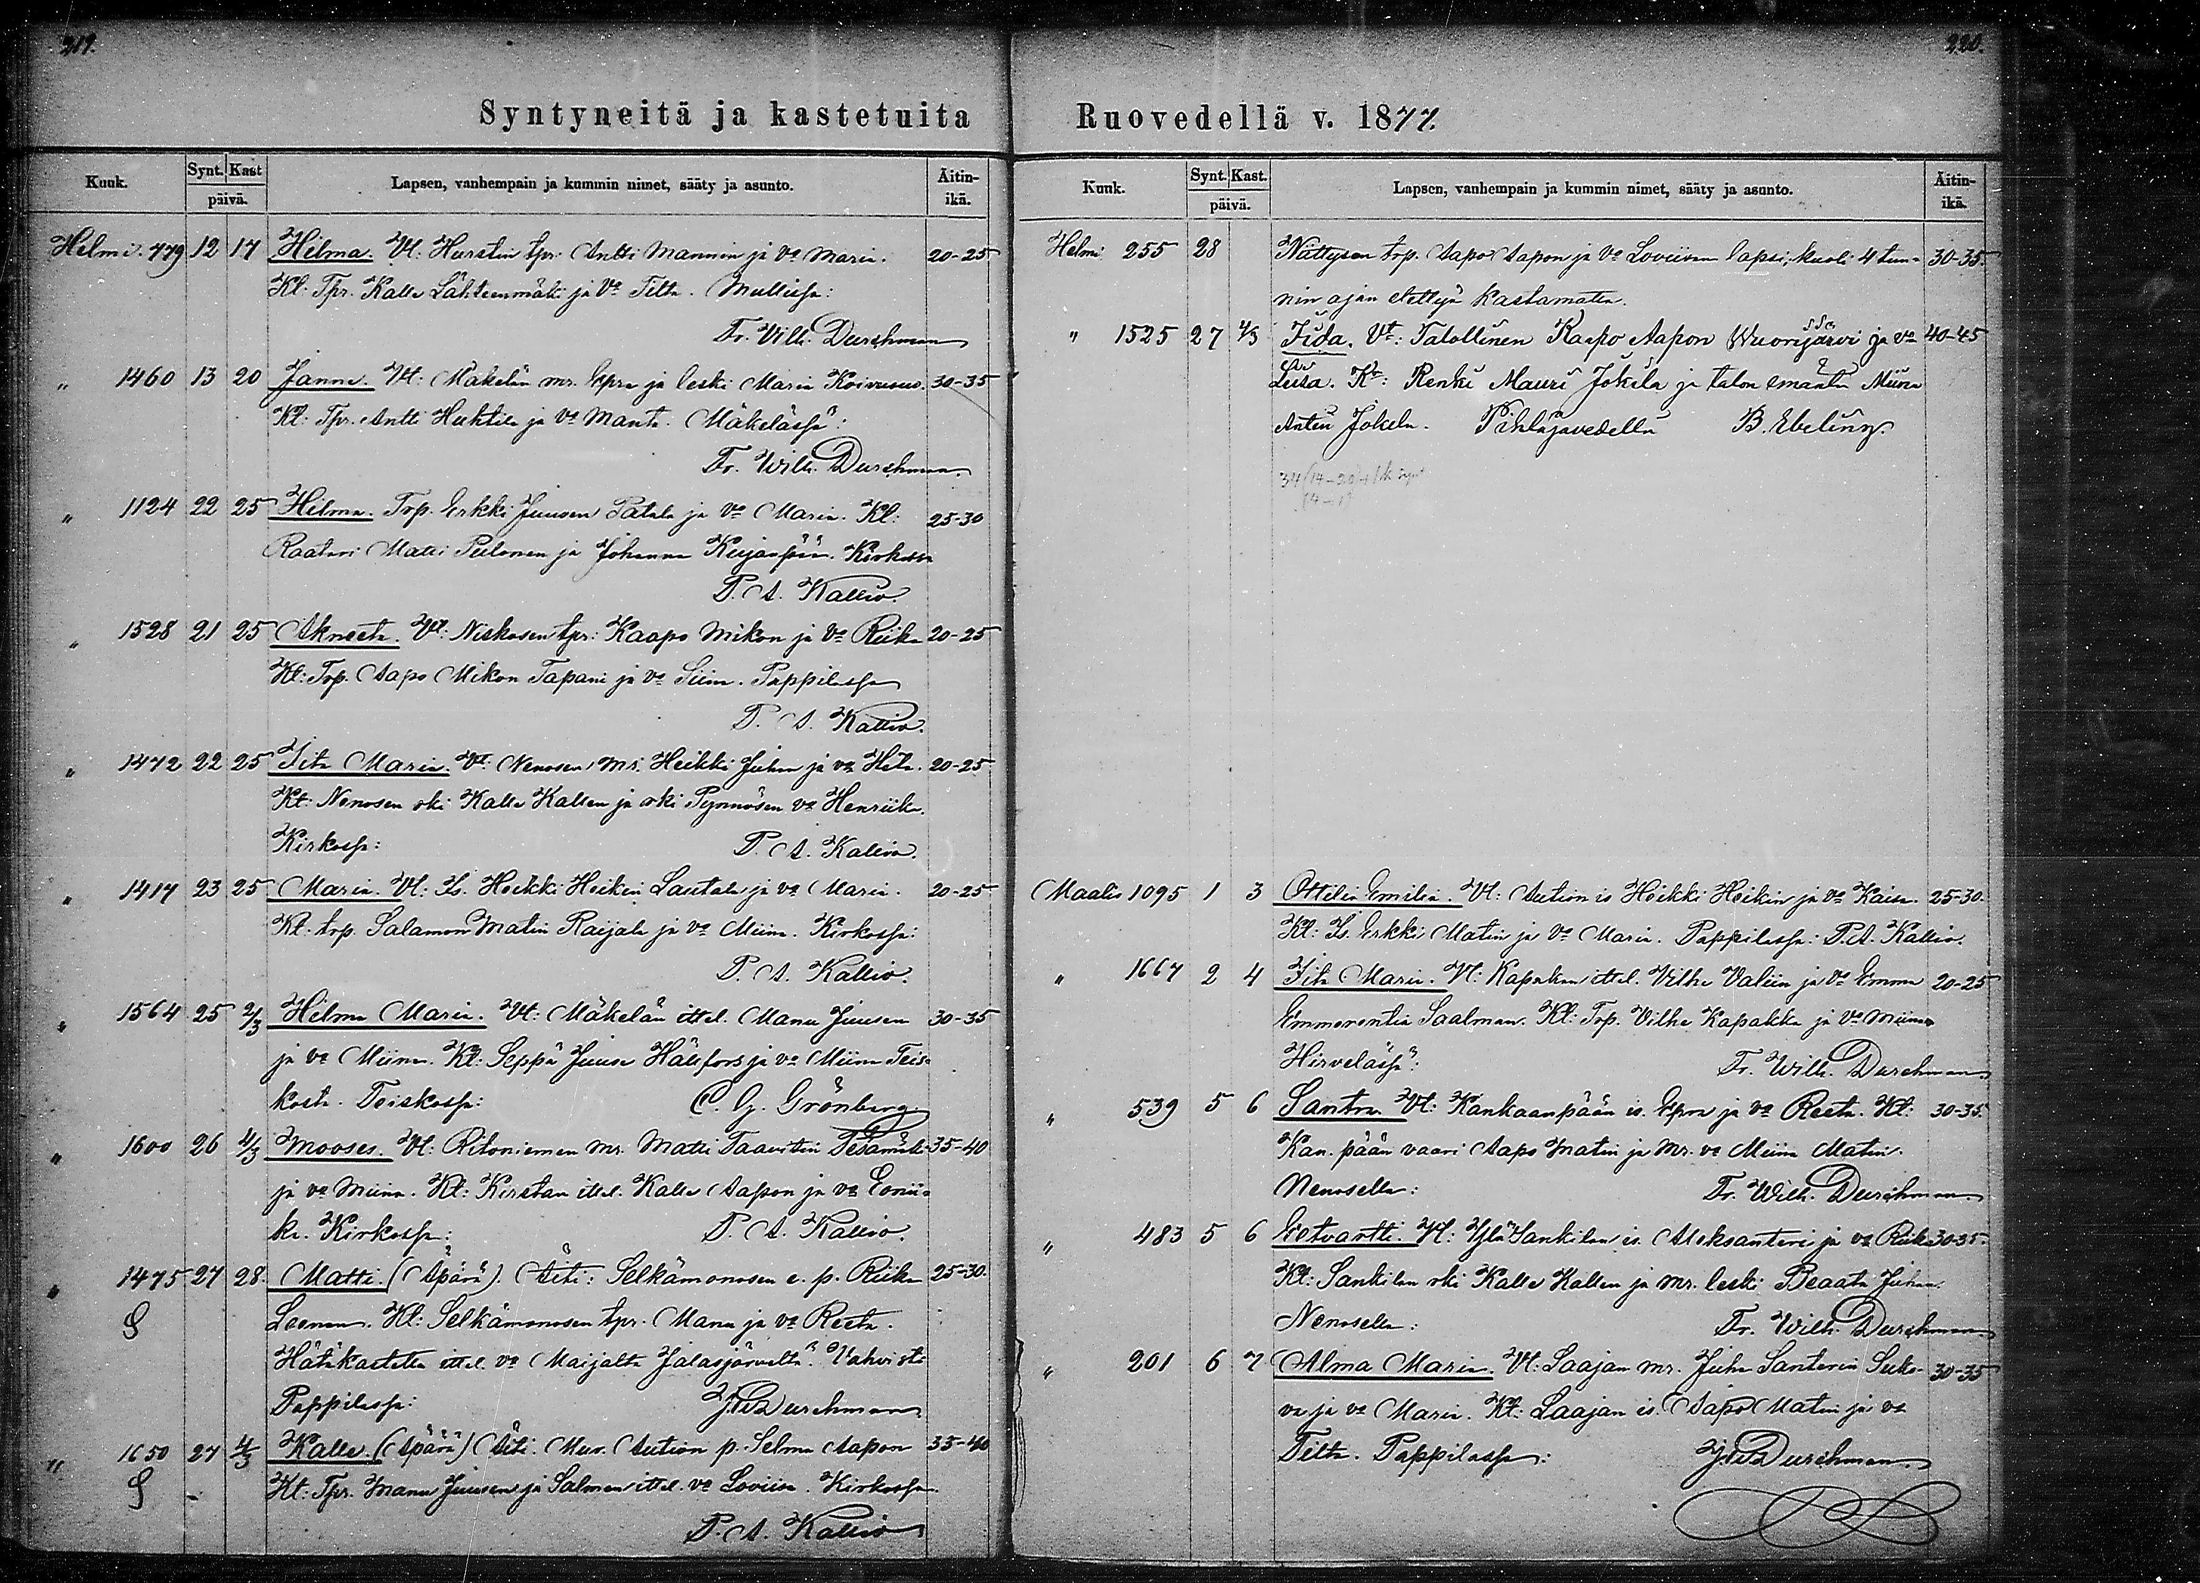 219.
Syntyneitä ja kastetuita
Kuuk.
Synt. Kast
päivä.
Lapsen, vanhempain ja kummin nimet, sääty ja asunto.
Äitin-
ikä.
Helmi. 779 12 17 Hilma. Vt: Hurstin tpr. Antti Mannin ja Vo Maria. 20-25
Kt: Tpr. Kalle Lähteenmäki ja Vo Tilta.
Fr. Wilh. Durchman
" 1460 13 20 Janne. Vt: Mäkelän mr. Epra ja leski Maria Koivusuo. 30-35
Kt: Tpr. Antti Huhtila ja vo Manta. Mäkelässä:
Fr. Wilh. Durchman.
" 1124 22 25 Hilma. Trp. Erkki Juusen Patala ja vo Maria. Kt: 25-30
Raatari Matti Peltonen ja Johanna Kujanpää. Kirkossa
P. A. Kallio.
" 1528 21 25 Akneeta. Vt: Niskosen tpr: Kaapo Mikon ja Vo Riika 20-25
Kt: Trp. Aapo Mikon Tapani ja vo Siina. Pappilassa
P. A. Kallio.
" 1472 22 25 Iita Maria. Vt: Nenosen mr. Heikki Juhan ja vo Heta. 20-25
Kt: Nenosen rki Kalle Kallen ja rki Pynnösen vo Henriika.
Kirkossa: P. A. Kallio.
" 1417 23 25 Maria. Vt: Is. Heikki Heikin Lautala ja vo Maria. 20-25
Kt. trp. Salamon Matin Raijala ja vo Miina. Kirkossa:
P. A. Kallio.
" 1564 25 2/3 Hilma Maria. Vt: Mäkelän ittel. Manu Juusen 30-35
ja vo Miina. Kt: Seppä Juuse Hälifors ja vo Miina Teis-
kosta. Teiskossa: C. G. Grönberg
" 1600 26 4/3 Mooses. Vt: Ritoniemen mr. Matti Taavetin Pesämäki 35-40
ja vo Miina. Kt: Kirstan ittel. Kalle Aapon ja vo Eerii-
ka. Kirkossa: P. A. Kallio.
" 1475 27 28. Matti. (Äpärä). Äiti: Selkämonosen e. p. Riika 25-30.
S Kt: Selkämonosen tpr. Manu ja vo Reeta.
Hätäkastettu ittel. vo Maijalta Jalasjärveltä. Vahvist:
Pappilassa: J. W. Durchman
" 1650 27 4/3 Kalle. (Äpärä) Äiti. Mur. Aution p. Selma Aapon 35-40
S Kt: Tpr. Manu Juusen ja Salmen ittel. vo Loviisa. Kirkossa
P. A. Kallio
220.
Ruovedellä v. 1877.
Kuuk.
Synt. Kast.
päivä.
Lapsen, vanhempain ja kummin nimet, sääty ja asunto.
Äitin-
ikä.
Helmi 255 28 Nättysen trp. Aapo Aapon ja Vo Loviisan lapsi, kuoli 4 tun- 30-35.
nin ajan elettyä kastamata.
" 1525 27 4/3 Iida. Vt: Talollinen Kaapo Aapon Wuorijärvi ja vo 40-45
Liisa. Kt: Renki Mauri Jokela ja talon emäntä Miina
Antin Jokela. Pihlajavedellä B. Ebeling.
Maalis 1095 1 3 Ottilia Emilia. Vt: Aution is Heikki Heikin ja vo Kaisa. 25-30.
Kt: Is. Erkki Matin ja vo Maria. Pappilassa: P. A. Kallio.
" 1667 2 4 Iita Maria. Vt: Kapakan ittel. Vilhe Valiin ja vo Emma 20-25
Emmerentia Saalman. Kt: Trp. Vilhe Kapakka ja vo Miina
Hirvelässä: Fr. Wilh. Durchman
" 539 5 6 Santra. Vt: Kankaanpään is. Epra ja vo Reeta. Kt: 30-35.
Kan. pään vaari Aapo Matin ja mr. vo Miina Matin.
Nenosella: Fr. Wilh. Durchman
" 483 5 6 Eetvartti. Vt: Ylä Sankilan is. Aleksanteri ja vo Riika 30-35.
Kt: Sankilan rki Kalle Kallen ja mr. leski Beaata Juhan.
Nenosella: Fr. Wilh. Durchman
" 201 6 7 Alma Maria. Vt: Laajan mr. Juha Santerin Suko- 30-35
va ja vo Maria. Kt: Laajan is. Aapo Matin ja vo
Tilta. Pappilassa: J. W. Durchman